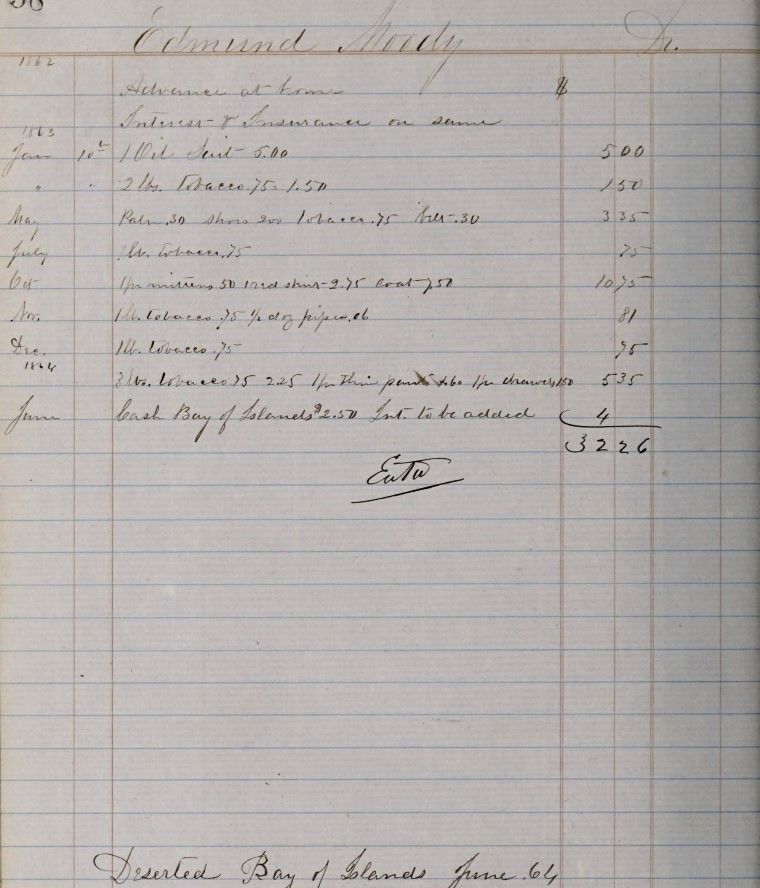 Edmund Moody Dr.
1862
Advance at home $
Interest & Insurance on same
1863
Jan 10th 1 Oil Suit 5.00 5 00
" " 2 lbs. tobacco .75 1.50 1 50
May Palm .30 shoes 2.00 tobacco .75 belt .30 3 35
July 1 lb. tobacco .75 75
Oct 1 pr mittens 50 1 red shirt 2.75 coat 7.50 10 75
Nov. 1 lb. tobacco .75 ½ doz pipes .06 81
Dec. 1 lb. tobacco .75 75
1864
3 lbs. tobacco 75 2.25 1 pr thin pants 1.60 1 pr drawers 1.50 5 35
June Cash Bay of Islands $2.50 Int. to be added 4
32 26
Deserted Bay of Islands June .64